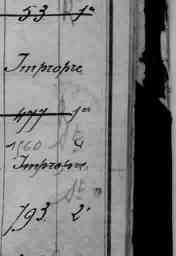 53 1a
Impropre
477 1a
1560 4
Impropre
793. 2a